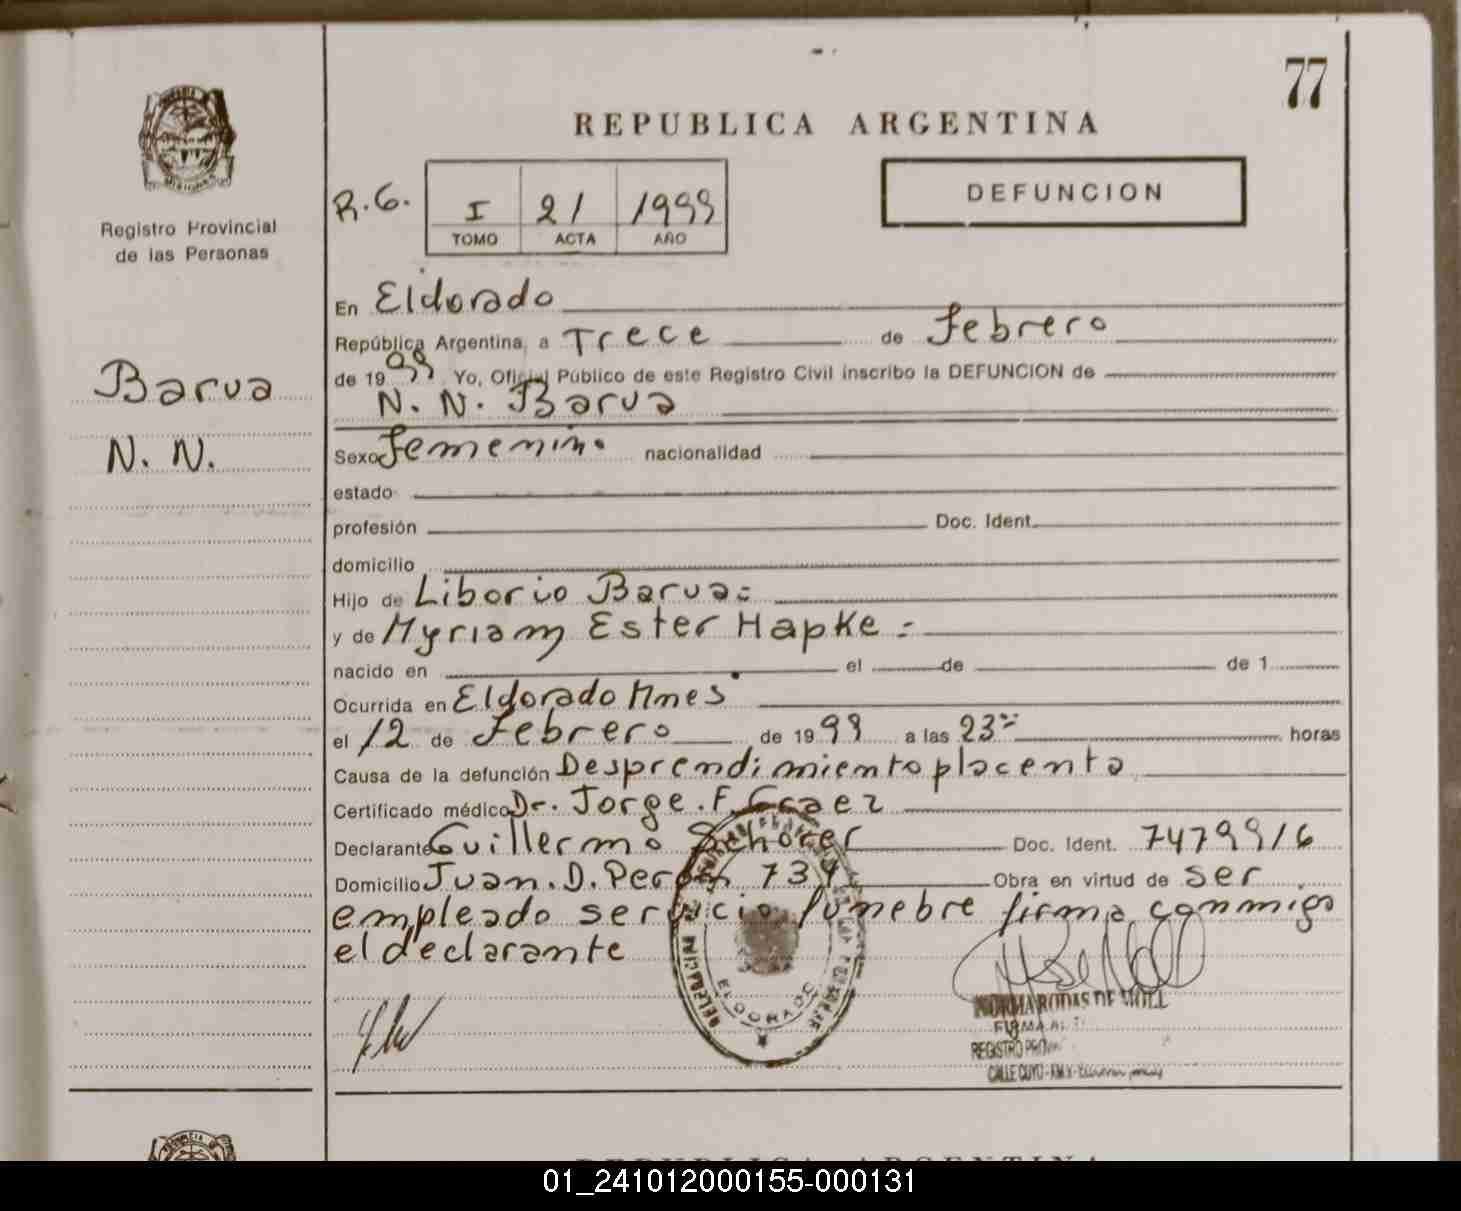 77
REPUBLICA ARGENTINA
PROVINCIA DE
MISIONES
Registro Provincial
de las Personas
R.G.
I 21 1999
TOMO ACTA AÑO
DEFUNCION
Barua
N. N.
En Eldorado
República Argentina, a Trece de Febrero
de 1999 Yo, Oficial Público de este Registro Civil inscribo la DEFUNCION de
N. N. Barua
Sexo Femenino nacionalidad
estado
profesión Doc. Ident.
domicilio
Hijo de Liborio Barua=
y de Myriam Ester Hapke =
nacido en el de de 1
Ocurrida en Eldorado Mnes
el 12 de Febrero de 1999 a las 23 horas
Causa de la defunción Desprendimiento placenta
Certificado médico Dr. Jorge. F. Graez
Declarante Guillermo Schorer Doc. Ident. 7479916
Domicilio Juan. D. Perón 739 Obra en virtud de ser
empleado servicio fúnebre firma conmigo
el declarante
ELDORADO
NORMA RODAS DE MOLL
REGISTRO
CALLE CUYO
REPUBLICA ARGENTINA
01_241012000155-000131